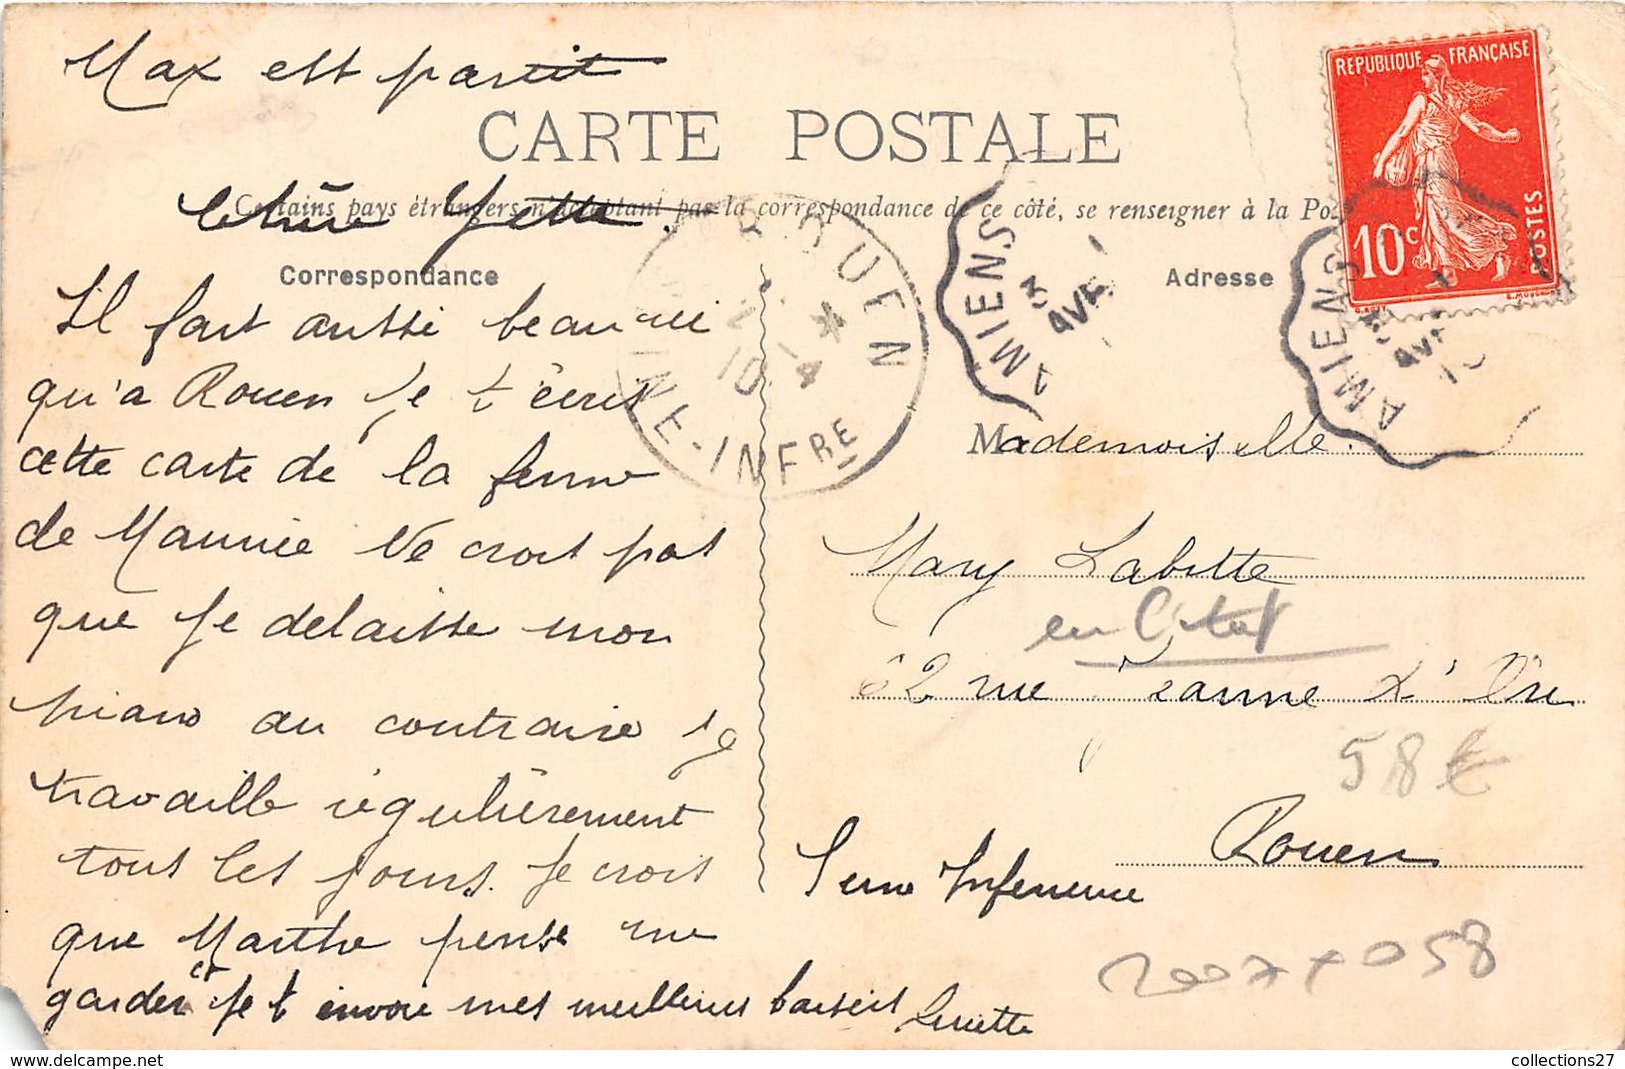 Max est partit
CARTE POSTALE
Certains pays étrangers n'acceptant pas la correspondance de ce côté, se renseigner à la Po
Chère Yette.
Correspondance
Il fait aussi beau ici
qu'a Rouen Je t'écris
cette carte de la ferme
de Maurice Ne crois pas
que je delaisse mon
piano au contraire je
travaille régulièrement
tous les jours. Je crois
que Marthe pense me
garder et Je t envoie mes meilleurs baisers Lucette
REPUBLIQUE FRANÇAISE
10c
POSTES
ROUEN
INE-INFRE
10 4
AMIENS
3
AVR
AMIENS
3
AVR
10
Adresse
Mademoiselle.
Mary Labitte
en l'état
62 rue Jeanne d'Arc
58 €
Rouen
Seine Inferieure
2007 058
collections27